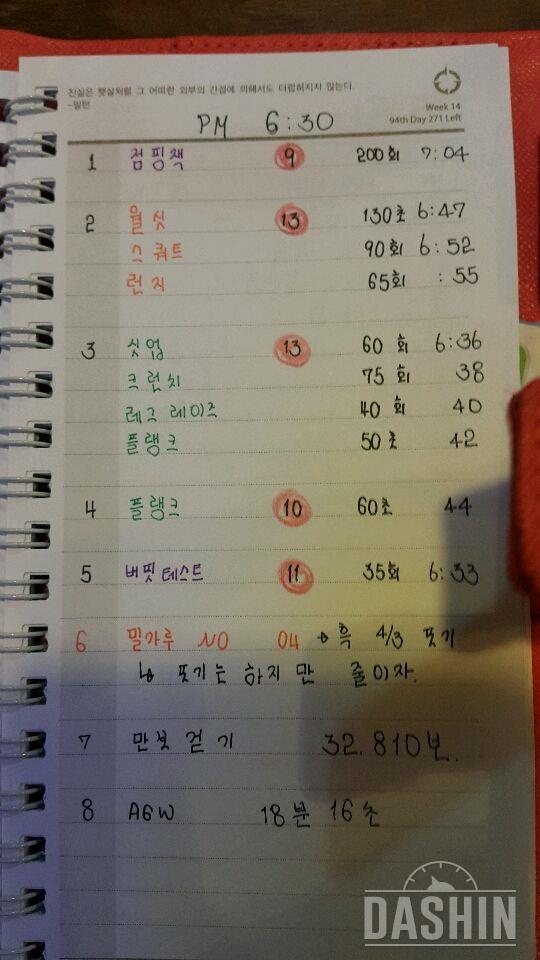 진실은 햇살처럼 그 어떠한 외부의 간섭에 의해서도 더럽혀지지 않는다.
-밀턴
Week 14
94th Day 271 Left
PM 6:30
1 점핑잭 9 200회 7:04
2 월싯 13 130초 6:47
스쿼트 90회 6:52
런지 65회 :55
3 싯업 13 60회 6:36
크런치 75회 38
레그레이즈 40회 40
플랭크 50초 42
4 플랭크 10 60초 44
5 버핏테스트 11 35회 6:33
6 밀가루 NO 04 → 흑 4/3 포기
↳ 포기는 하지만 줄이자.
7 만봇걷기 32.810보.
8 A6W 18분 16초
DASHIN